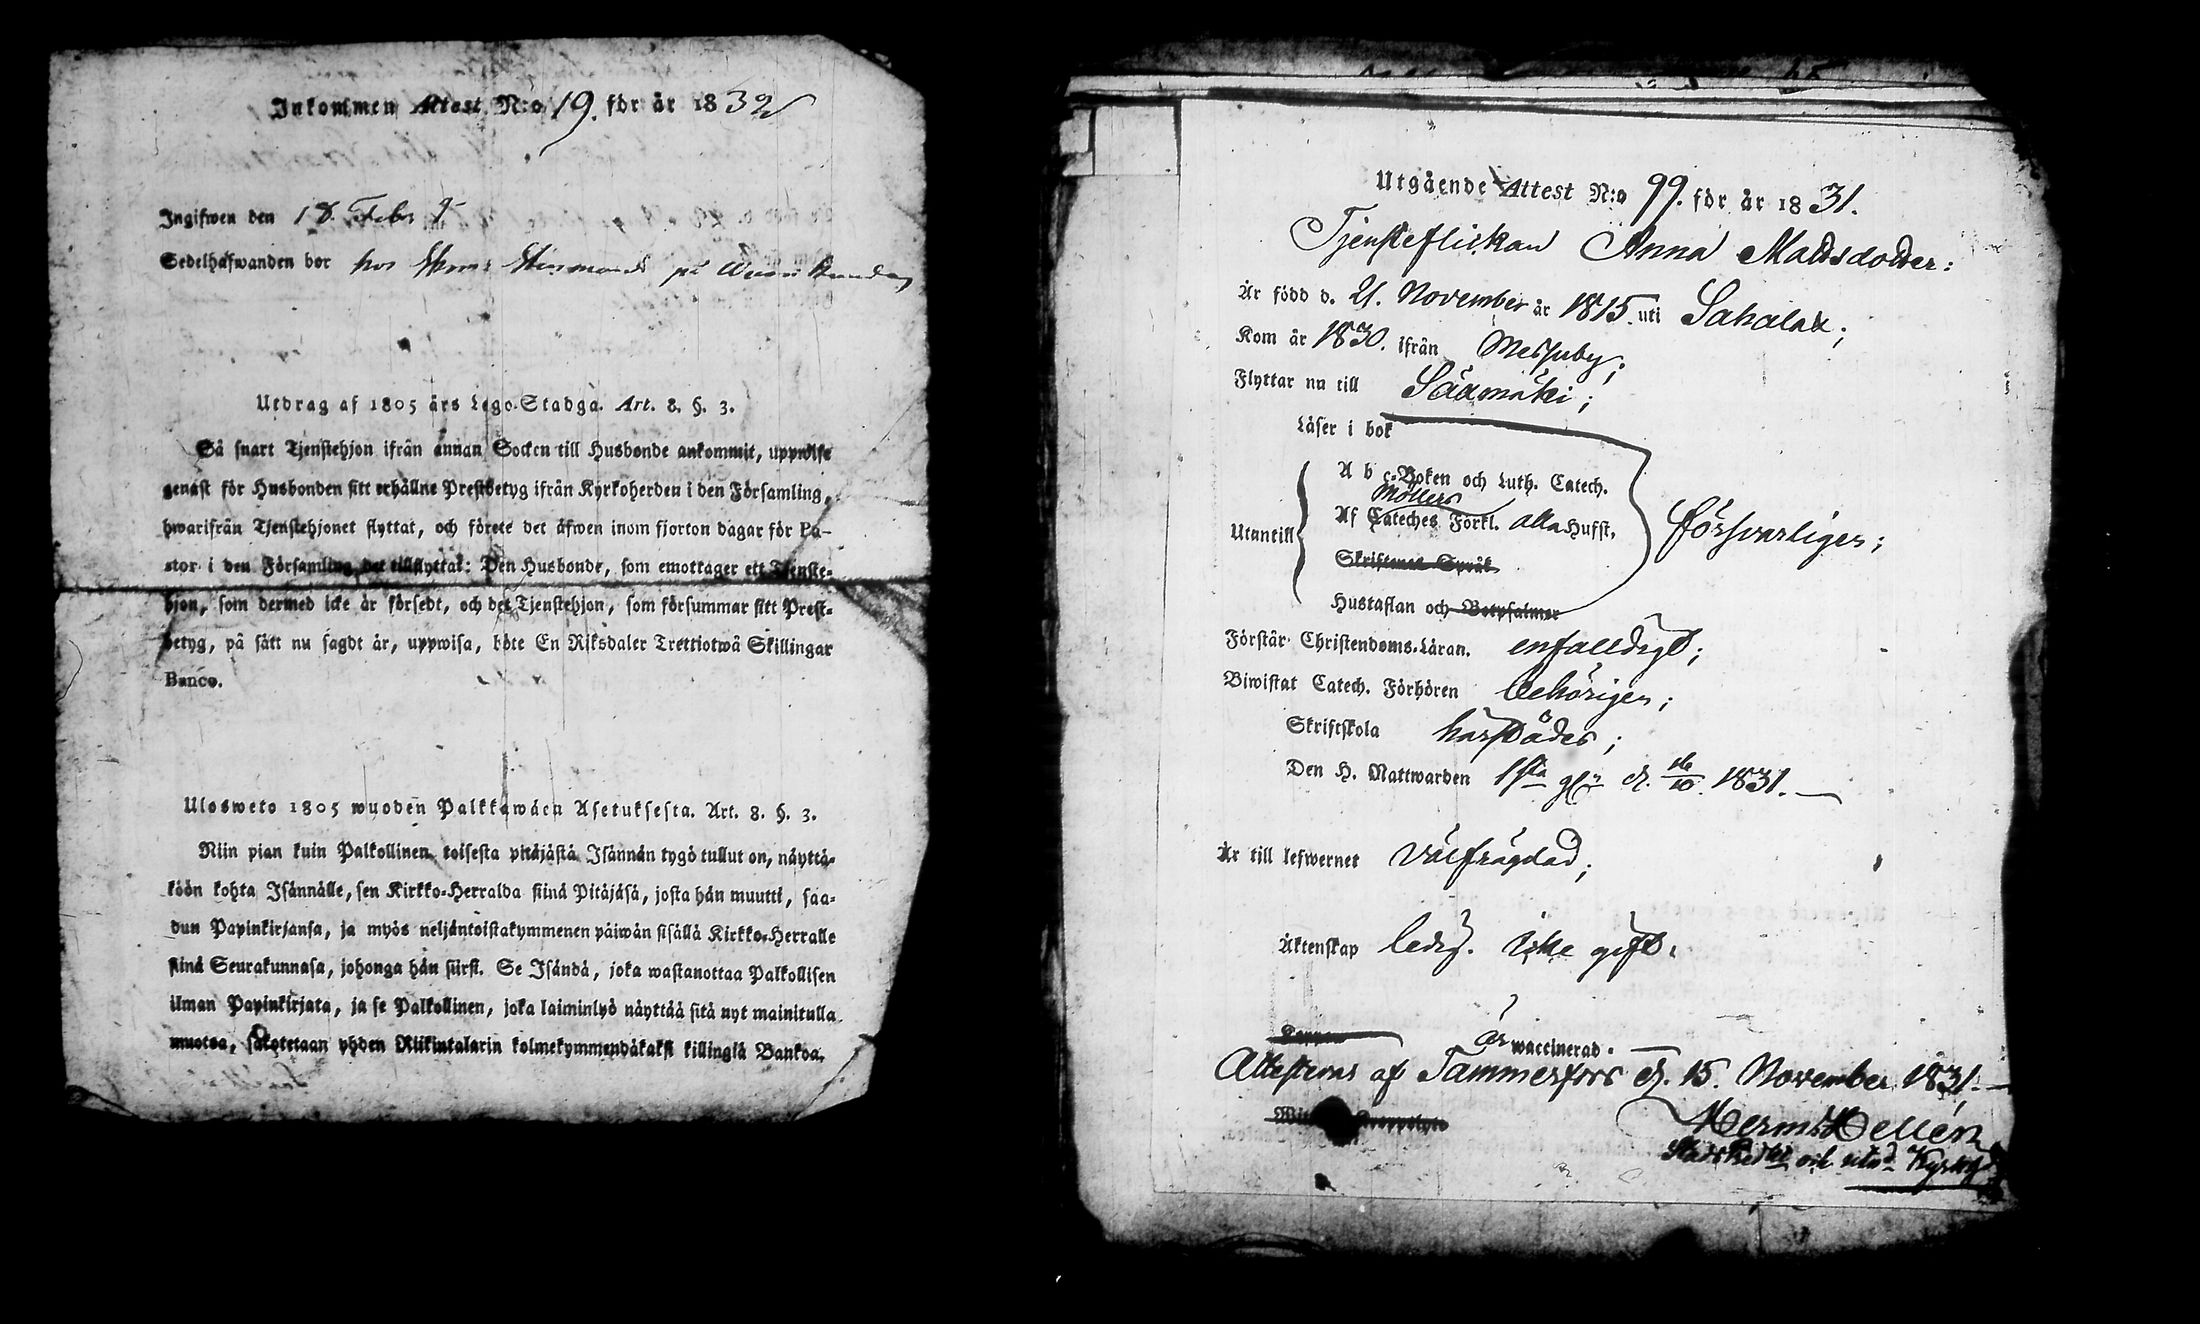 Inkommen Attest N:o 19. för år 1832
Ingifwen den 18. Febr
Sedelhafwanden bor hos på
Utdrag af 1805 års Lego-Stadga. Art. 8. §. 3.
Så snart Tjenstehjon ifrån annan Socken till Husbonde ankommit, uppwise
genast för Husbonden sitt erhållne Prestbetyg ifrån Kyrkoherden i den Församling,
hwarifrån Tjenstehjonet flyttat, och förete det äfwen inom fjorton dagar för Pa-
stor i den Församling det tillflyttat: Den Husbonde, som emottager ett Tjenste-
hjon, som dermed icke är försedt, och det Tjenstehjon, som försummar sitt Prest-
betyg, på sätt nu sagdt är, uppwisa, böte En Riksdaler Trettiotwå Skillingar
Banco.
Ulosweto 1805 wuoden Palkkawäen Asetuksesta. Art. 8. §. 3.
Niin pian kuin Palkollinen toisesta pitäjästä Isännän tygö tullut on, näyttä-
köön kohta Isännälle, sen Kirkko-Herralda siinä Pitäjäsä, josta hän muutti, saa-
dun Papinkirjansa, ja myös neljäntoistakymmenen päiwän sisällä Kirkko-Herralle
siinä Seurakunnasa, johonga hän siirst. Se Isändä, joka wastanottaa Palkollisen
ilman Papinkirjata, ja se Palkollinen, joka laiminlyö näyttää sitä nyt mainitulla
muotoa, sakotetaan yhden Riikintalarin kolmekymmendäkaksi killingiä Bankoa.
Utgående Attest N:o 99. för år 1831.
Tjensteflickan Anna Mattsdotter:
Är född d. 21. November år 1815. uti Sahalax;
Kom år 1830. ifrån Messuby;
Flyttar nu till Säämäki;
Läser i bok
A b c-Boken och Luth. Catech.
Möllers
Af Cateches Förkl. alla Hufst.
Utantill försvarligen;
Skriftenes Språk
Hustaflan och Botpsalmer
Förstår Christendoms-Läran. enfaldigt;
Biwistat Catech. Förhören behörigen;
Skriftskola härstädes;
Den H. Nattwarden 1sta d. 1831.
Är till lefwernet välfrägdad;
Äktenskap ledig. icke gift.
är waccinerad.
Attesteras af Tammerfors d. 15. November 1831.
Herm. Hellén